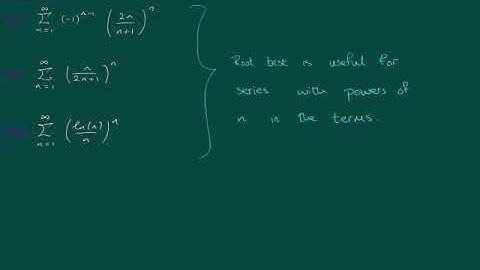 ∞ ∑ n=1 (-1)^(n-1) (2n/(n+1))^n
∞ ∑ n=1 (n/(2n+1))^n
∞ ∑ n=1 (ln(n)/n)^n
Root test is useful for
series with powers of
n in the terms.